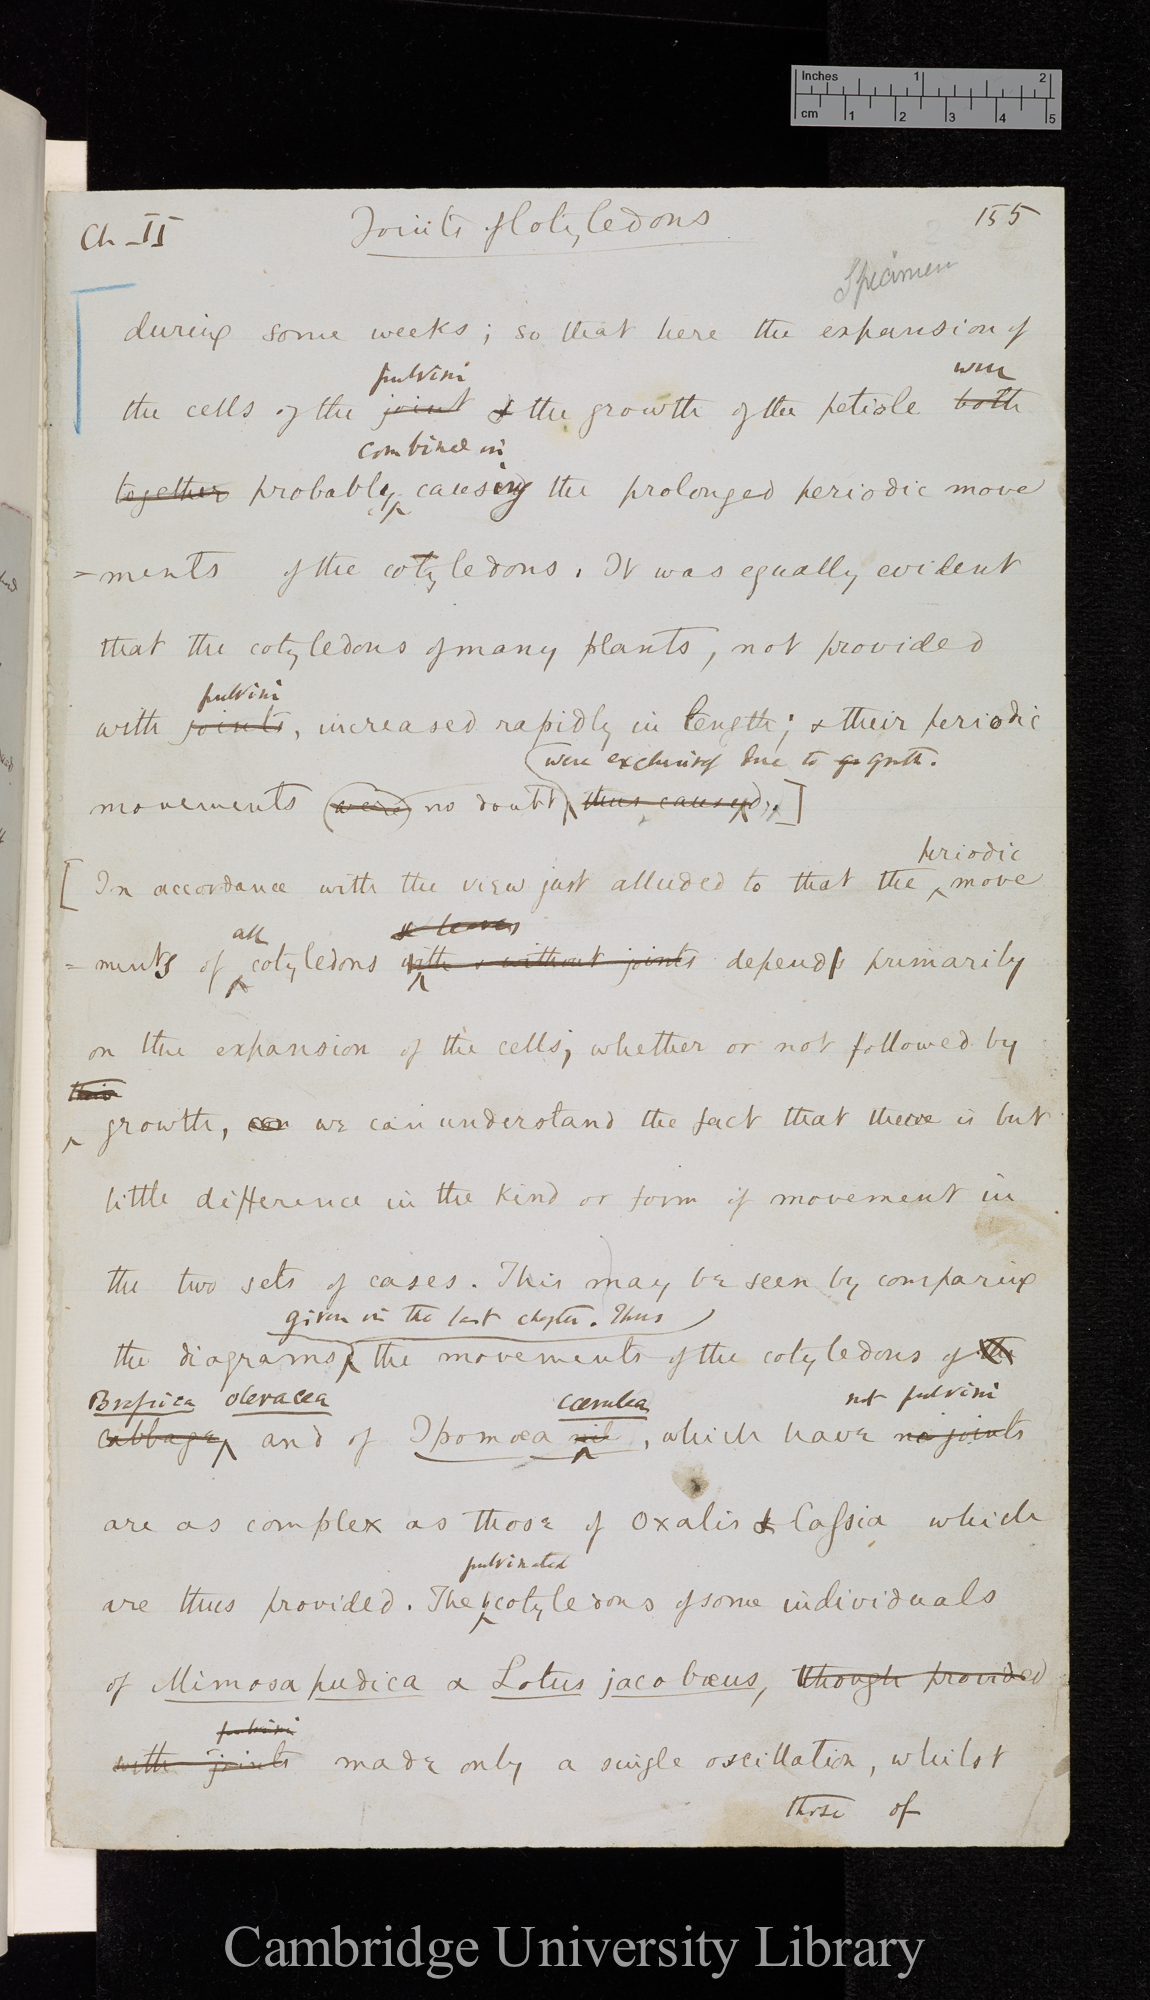 Inches 1 2
cm 1 2 3 4 5
Ch_II Joints of Cotyledons 155
Specimen
during some weeks; so that here the expansion of
pulvini were
the cells of the joint & the growth of the petiole both
combined in
together probably causing the prolonged periodic move
=ments of the cotyledons. It was equally evident
that the cotyledons of many plants, not provided
pulvini
with joints, increased rapidly in length; & their periodic
were exclusively due to growth.
movements were no doubt thus caused;]
periodic
[In accordance with the view just alluded to that the move
all & leaves
=ments of cotyledons with & without joints depends primarily
on the expansion of the cells, whether or not followed by
this
growth, can we can understand the fact that there is but
little difference in the kind or form of movement in
the two sets of cases. This may be seen by comparing
given in the last chapter. Thus
the diagrams, the movements of the cotyledons of the
Brassica oleracea cærulea not pulvini
cabbage, and of Ipomœa nil, which have no joints
are as complex as those of Oxalis & Cassia which
pulvinated
are thus provided. The cotyledons of some individuals
of Mimosa pudica & Lotus jacobæus, though provided
pulvini
with joints made only a single oscillation, whilst
those of
Cambridge University Library